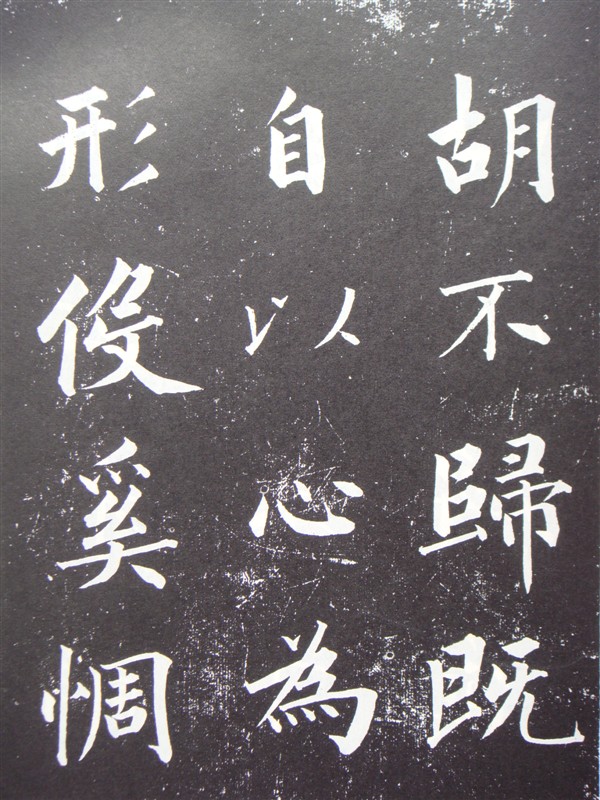 胡不歸既
自以心為
形役奚惆